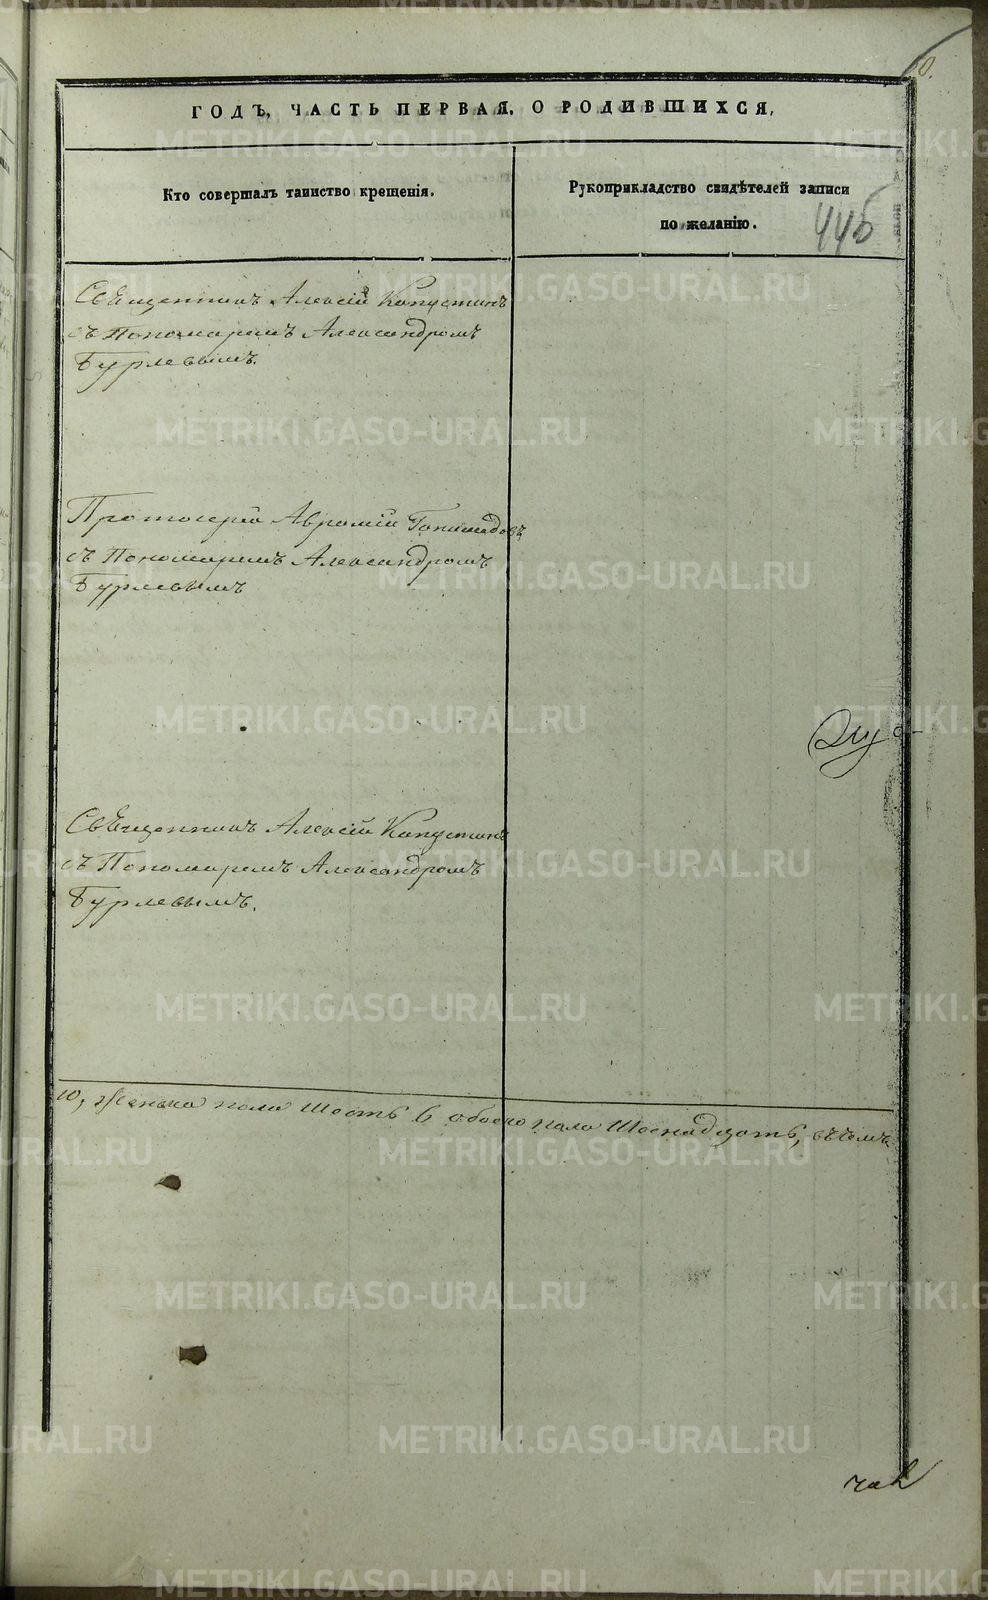 10.
ГОДЪ, ЧАСТЬ ПЕРВАЯ, О РОДИВШИХСЯ,
Кто совершалъ таинство крещенія.
Рукоприкладство свидѣтелей записи
по желанію.
446
Священникъ Алексій Капустинъ
съ Пономаремъ Александромъ
Бурлевымъ.
Протоіерей Аврамій
съ Пономаремъ Александромъ
Бурлевымъ
Священникъ Алексій Капустинъ
съ Пономаремъ Александромъ
Бурлевымъ.
10, Женска пола Шесть 6 обоего пола Шеснадцать, въ чемъ
METRIKI.GASO-URAL.RU